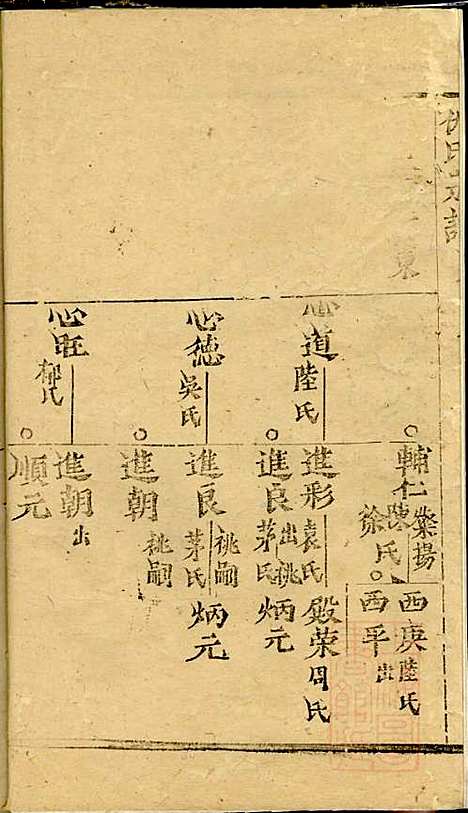 氏
東
輔仁
棠揚
陳氏
徐
西庚
陸氏
西平
出
心道
陸氏
進形
袁氏
殿荣
周氏
進良
出祧
茅氏
炳元
心德
吳氏
進良
祧嗣
茅氏
炳元
進朝
祧嗣
心旺
郁氏
進朝
出
順元